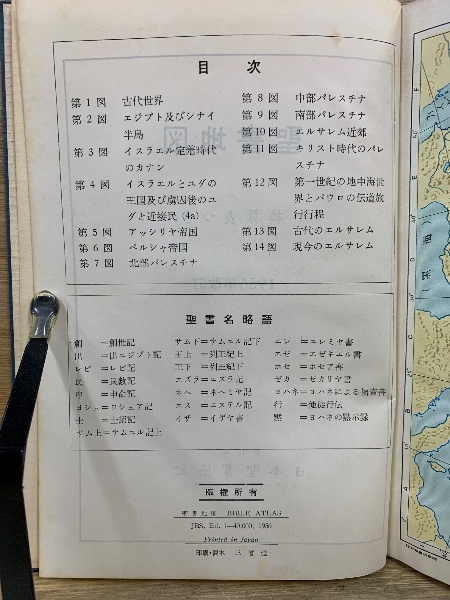 目次
第1図 古代世界
第2図 エジプト及びシナイ
半島
第3図 イスラエル定着時代
のカナン
第4図 イスラエルとユダの
王国及び虜囚後のユ
ダと近接民 (4a)
第5図 アッシリヤ帝国
第6図 ペルシャ帝国
第7図 北部パレスチナ
第8図 中部パレスチナ
第9図 南部パレスチナ
第10図 エルサレム近郊
第11図 キリスト時代のパレ
スチナ
第12図 第一世紀の地中海世
界とパウロの伝道旅
行行程
第13図 古代のエルサレム
第14図 現今のエルサレム
聖書名略語
創=創世記
出=出エジプト記
レビ=レビ記
民=民数記
申=申命記
ヨシュ=ヨシュア記
士=士師記
サム上=サムエル記上
サム下=サムエル記下
王上=列王紀上
王下=列王紀下
エズラ=エズラ記
ネヘ=ネヘミヤ記
エス=エステル記
イザ=イザヤ書
エレ=エレミヤ書
エゼ=エゼキエル書
ホセ=ホセア書
ゼカ=ゼカリヤ書
ヨハネ=ヨハネによる福音書
行=使徒行伝
黙=ヨハネの黙示録
版権所有
聖書地図 BIBLE ATLAS
JBS, Ed. 1—40,000, 1956
Printed in Japan
印刷・製本 三省堂